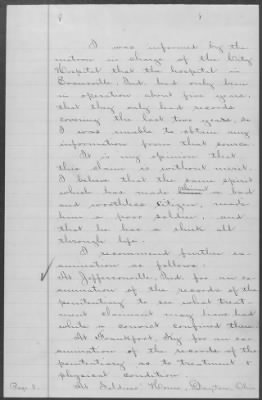 8
I was informed by the
matron in charge of the City
Hospital that the hospital in
Evansville, Ind. had only been
in operation about five years,
that they only had records
covering the last two years, so
I was unable to obtain any
information from that source.
It is my opinion that
this claim is without merit.
I believe that the same spirit
which has made claimant a bad
and worthless citizen, made
him a poor soldier, and
that he has a shirk all
through life.
I recommend further ex-
amination as follows.
At Jeffersonville, Ind. for an ex-
amination of the records of the
penitentiary to see what treat-
ment claimant may have had
while a convict confined there.
At Frankfort, Ky for an ex-
amination of the records of the
penitentiary as to treatment &
physical condition.
Page 8. At Soldiers Home, Dayton, Ohio